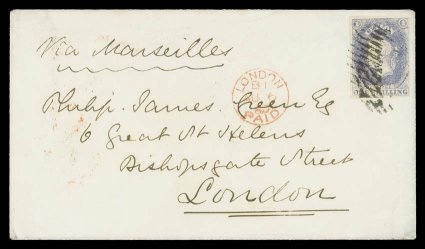 Via Marseilles
LONDON
PAID
Philip James Green Esq
6 Great St Helens
Bishopsgate Street
London